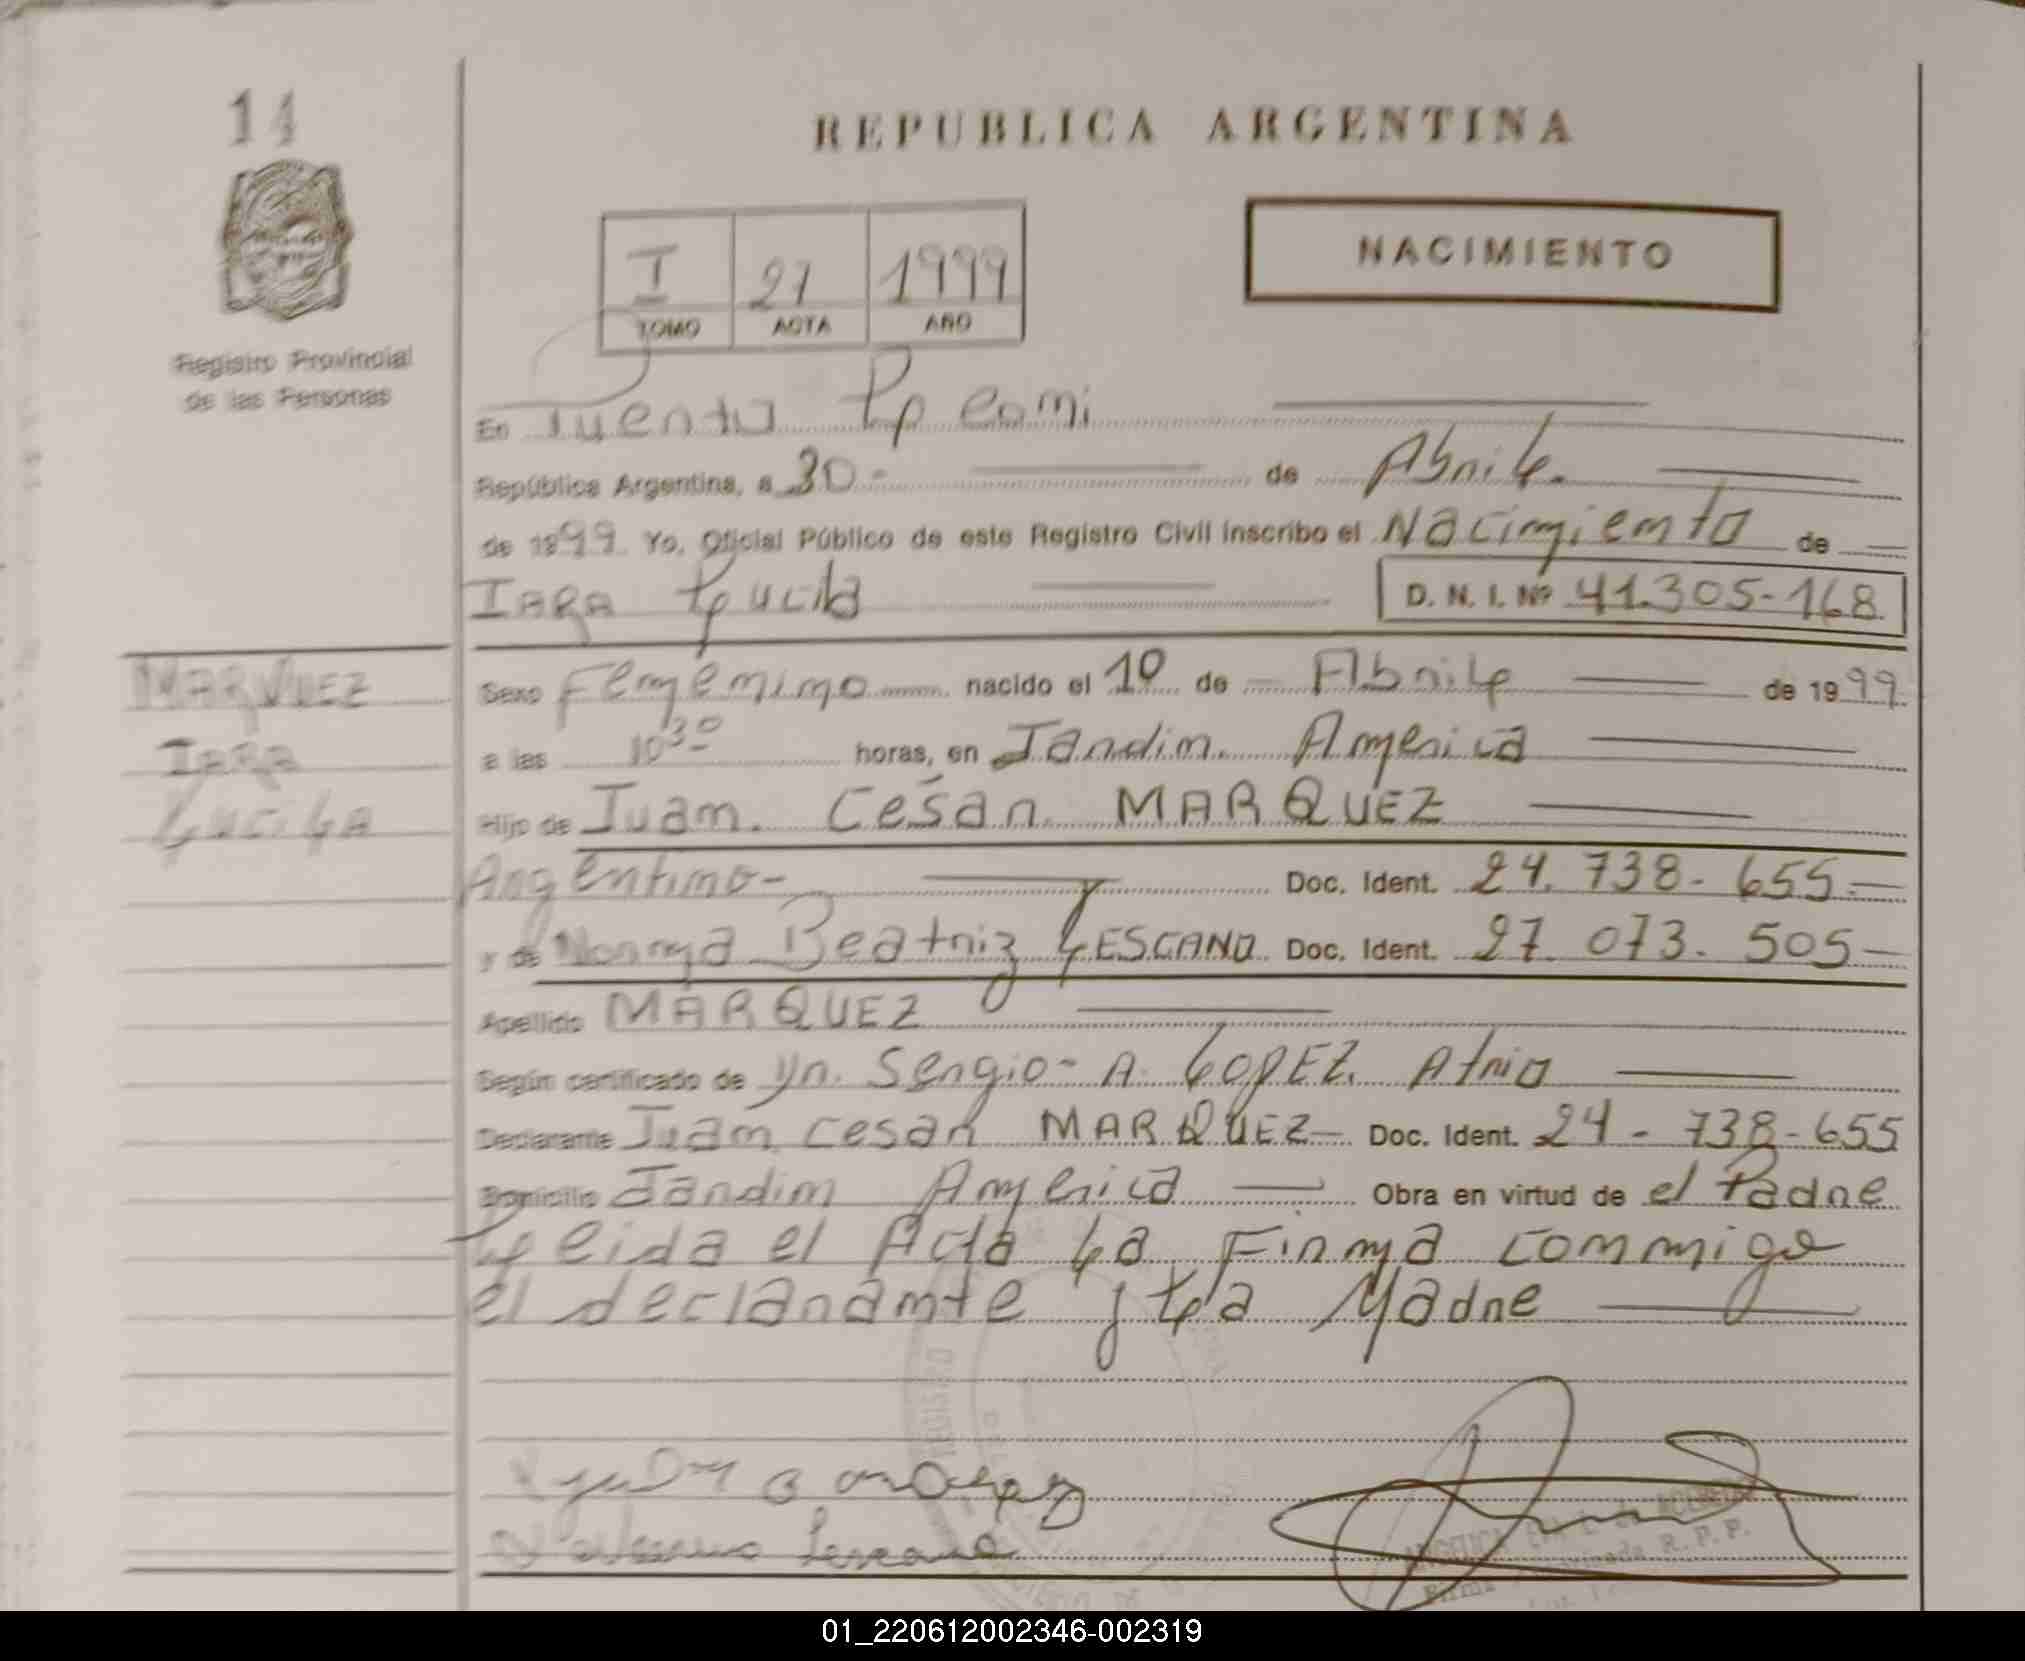 14
REPUBLICA ARGENTINA
Registro Provincial
de las Personas
I 27 1999
TOMO ACTA AÑO
NACIMIENTO
En
República Argentina, a 30 - de Abril.
de 1999. Yo, Oficial Público de este Registro Civil inscribo el Nacimiento de
IARA Lucila D. N. I. Nº 41.305-168
MARQUEZ
IARA
LUCILA
Sexo Femenino nacido el 10 de Abril de 1999
a las 10 30 horas, en Jardin America
Hijo de Juan Cesar MARQUEZ
Argentino- Doc. Ident. 24.738-655
y de Norma Beatriz LESCANO Doc. Ident. 27.073.505
Apellido MARQUEZ
Según certificado de Sergio - A. LOPEZ.
Declarante Juan Cesar MARQUEZ Doc. Ident. 24-738-655
Domicilio Jardin America Obra en virtud de el Padre
Leida el Acta La Firma conmigo
el declarante y La Madre
REGISTRO
Lescano
R.P.P.
01_220612002346-002319